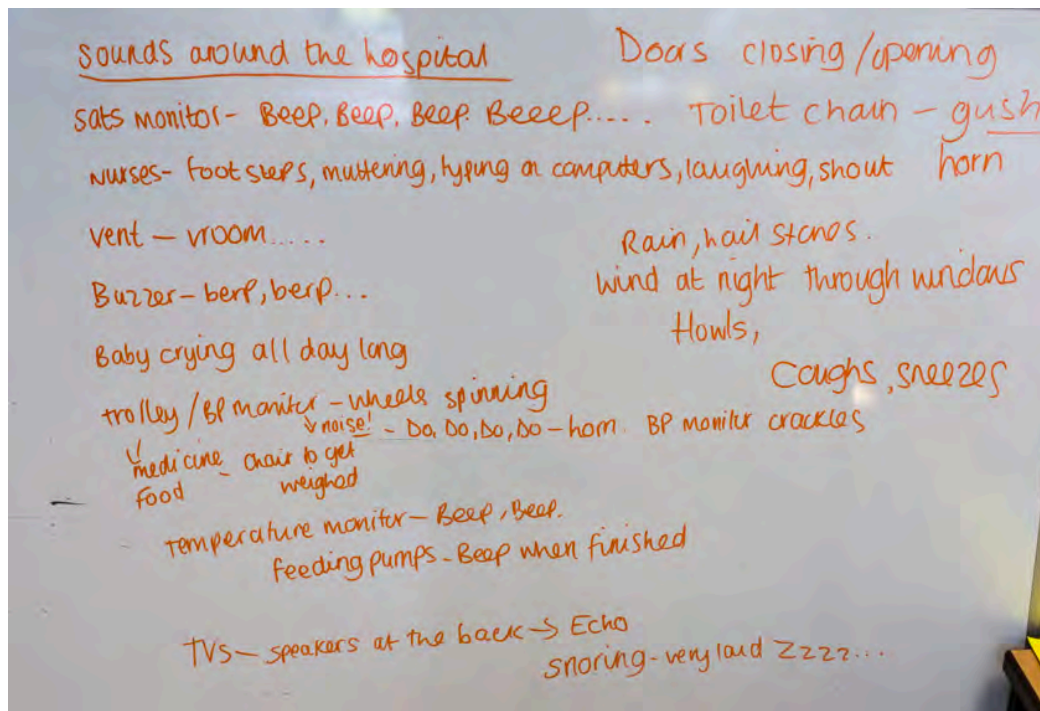 sounds around the hospital
Doors closing/opening
sats monitor - Beep, Beep, Beep. Beeep..... Toilet chain - gush
Nurses - foot steps, muttering, typing on computers, laughing, shout horn
vent - vroom.....
Rain, hail stones..
wind at night through windows
Howls,
Buzzer - berp, berp...
Baby crying all day long
Coughs, sneezes
trolley/BP monitor - wheels spinning
↓ noise! - Do, Do, Do, Do - horn. BP monitor crackles
↓
medicine - chair to get
food weighed
temperature monitor - Beep, Beep.
feeding pumps - Beep when finished
TVs - speakers at the back → Echo
snoring - very loud Zzzz...